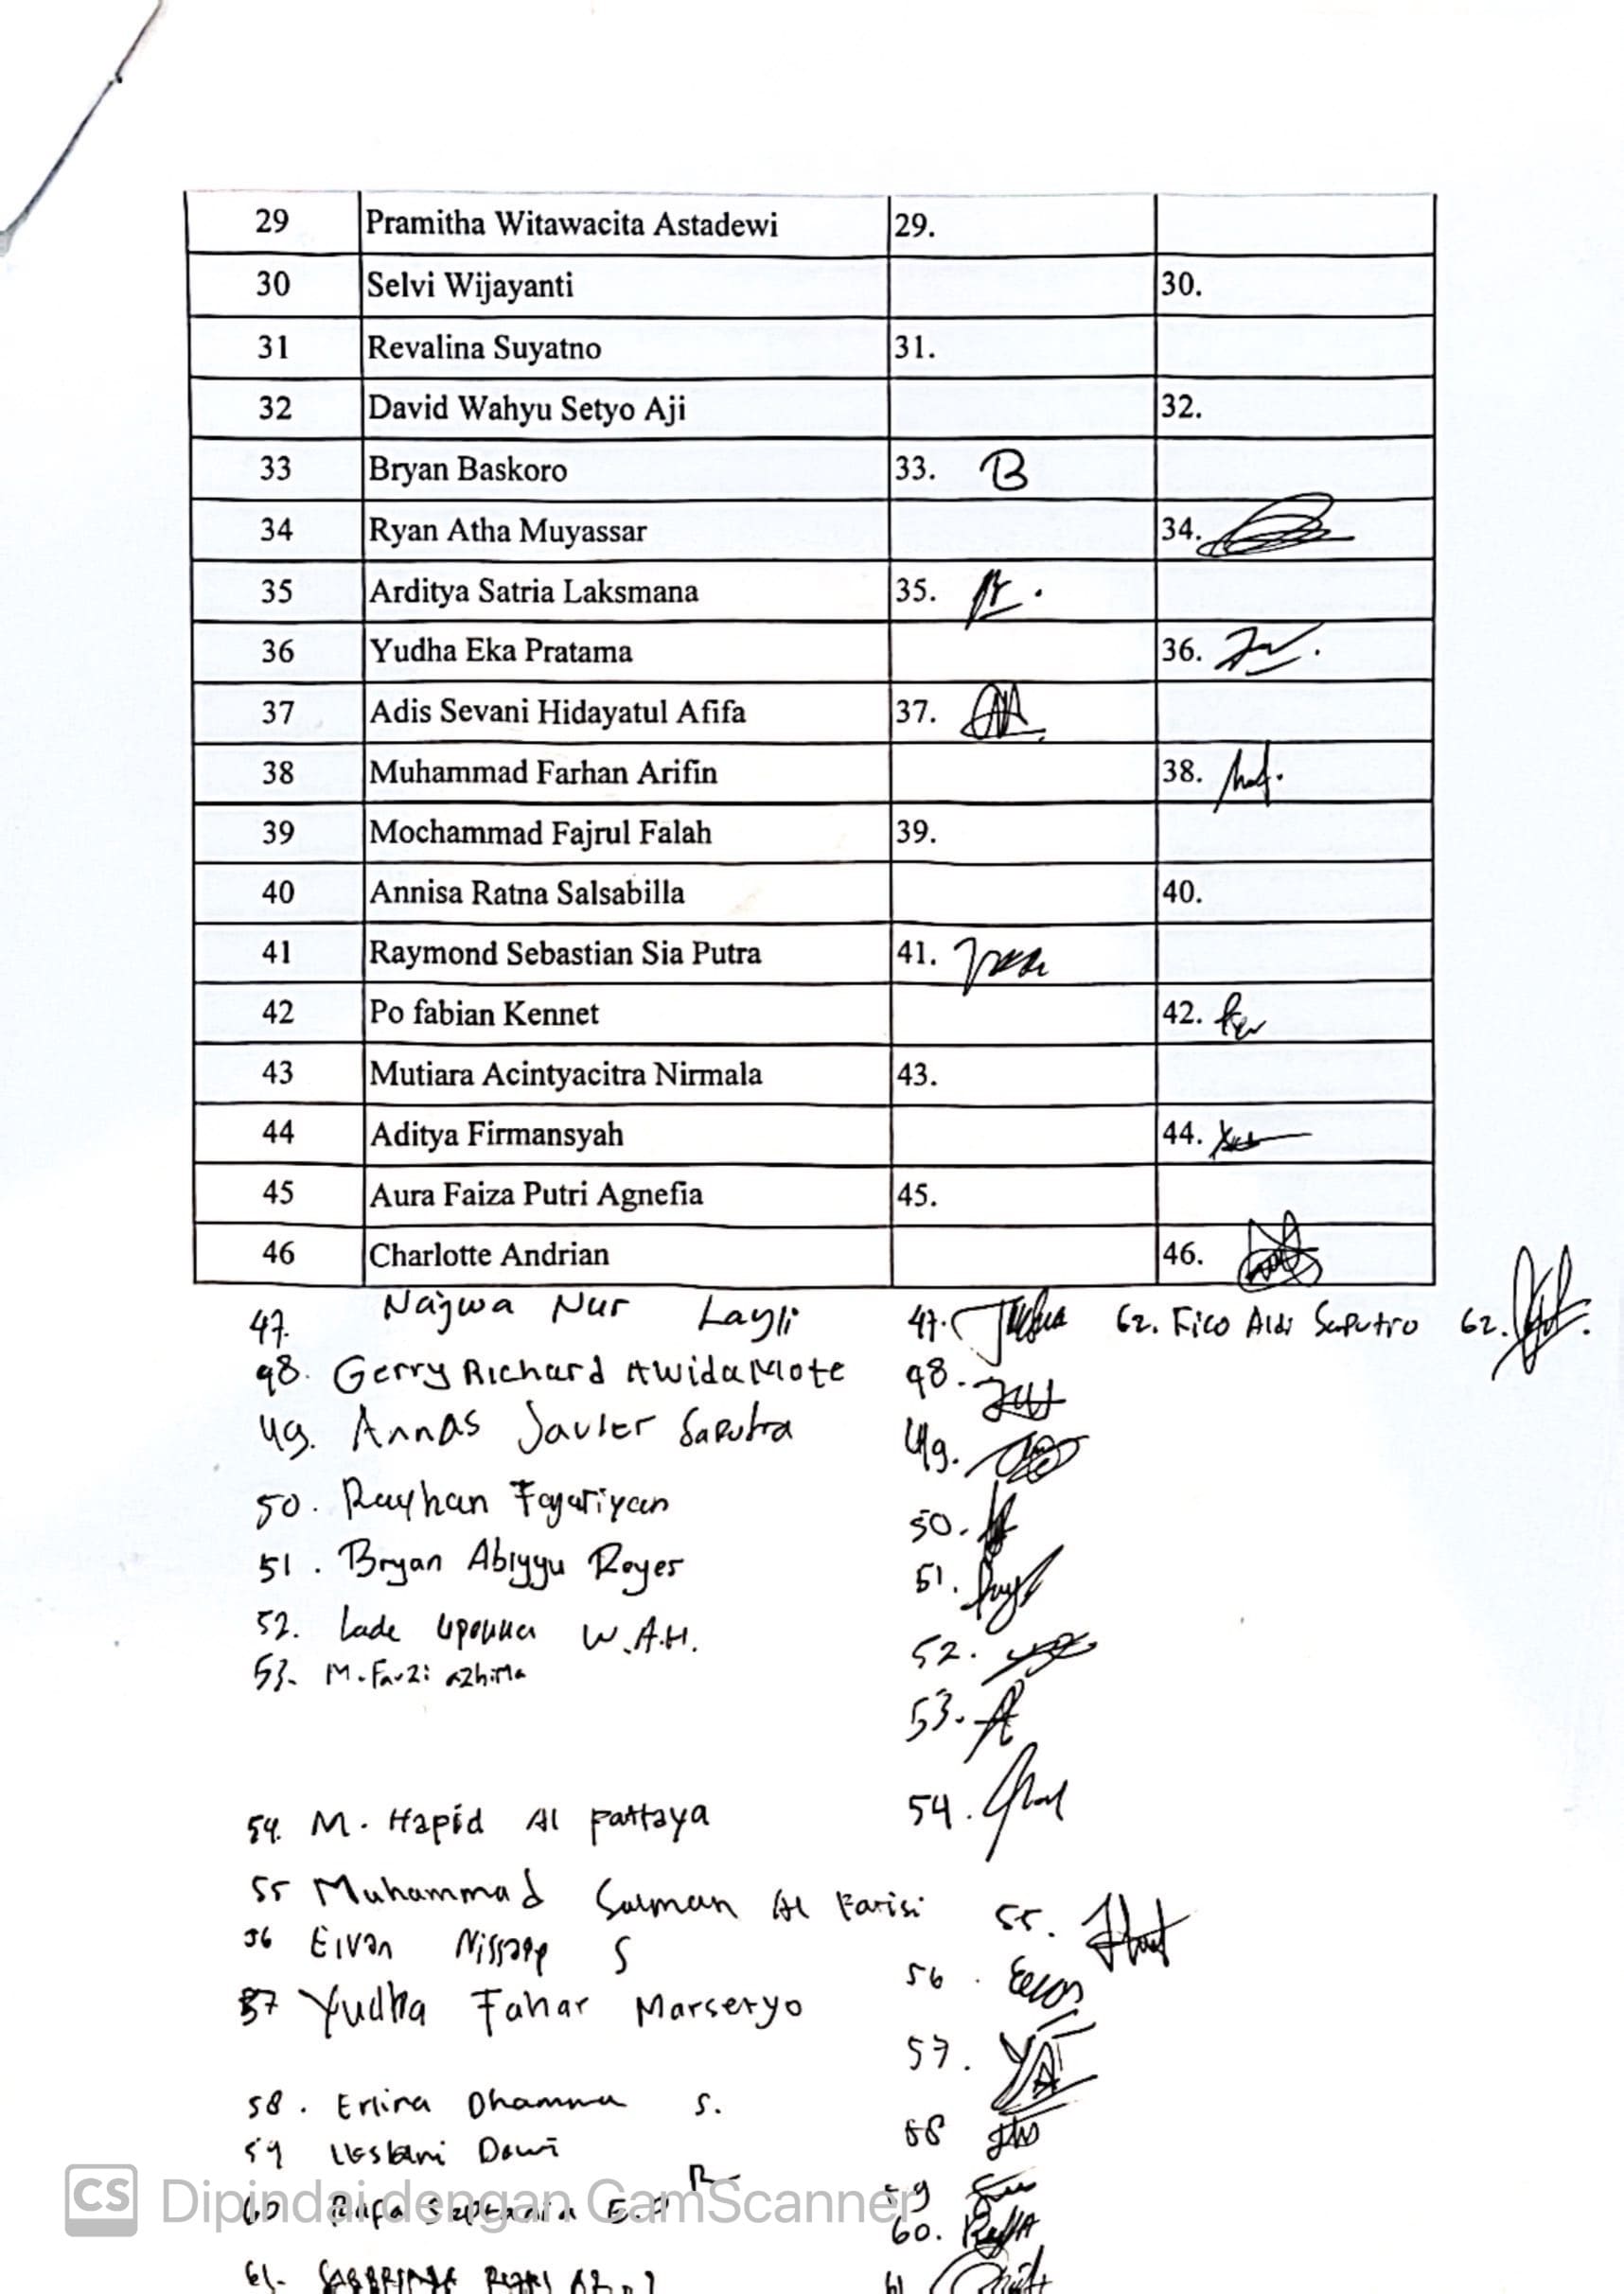 29 Pramitha Witawacita Astadewi 29.
30 Selvi Wijayanti 30.
31 Revalina Suyatno 31.
32 David Wahyu Setyo Aji 32.
33 Bryan Baskoro 33. B
34 Ryan Atha Muyassar 34.
35 Arditya Satria Laksmana 35.
36 Yudha Eka Pratama 36.
37 Adis Sevani Hidayatul Afifa 37.
38 Muhammad Farhan Arifin 38.
39 Mochammad Fajrul Falah 39.
40 Annisa Ratna Salsabilla 40.
41 Raymond Sebastian Sia Putra 41.
42 Po fabian Kennet 42.
43 Mutiara Acintyacitra Nirmala 43.
44 Aditya Firmansyah 44.
45 Aura Faiza Putri Agnefia 45.
46 Charlotte Andrian 46.
47. Najwa Nur Layli 47. 62. Fico Aldi Saputro 62.
48. Gerry Richard Awida Mote 48.
49. Annas Javier Saputra 49.
50. Rayhan 50.
51. Bryan Abiyyu Royes 51.
52. Lade W.A.H. 52.
53. M. Fauzi azhima 53.
54. M. Hapid Al pattaya 54.
55 Muhammad Salman Al Farisi 55.
56 Eivan S 56.
57 Yudha Fahar Marseryo 57.
58. Erlina Dhamma S. 58
59 Lestari Dewi 59
60 60.
61. 61
CS Dipindai dengan CamScanner